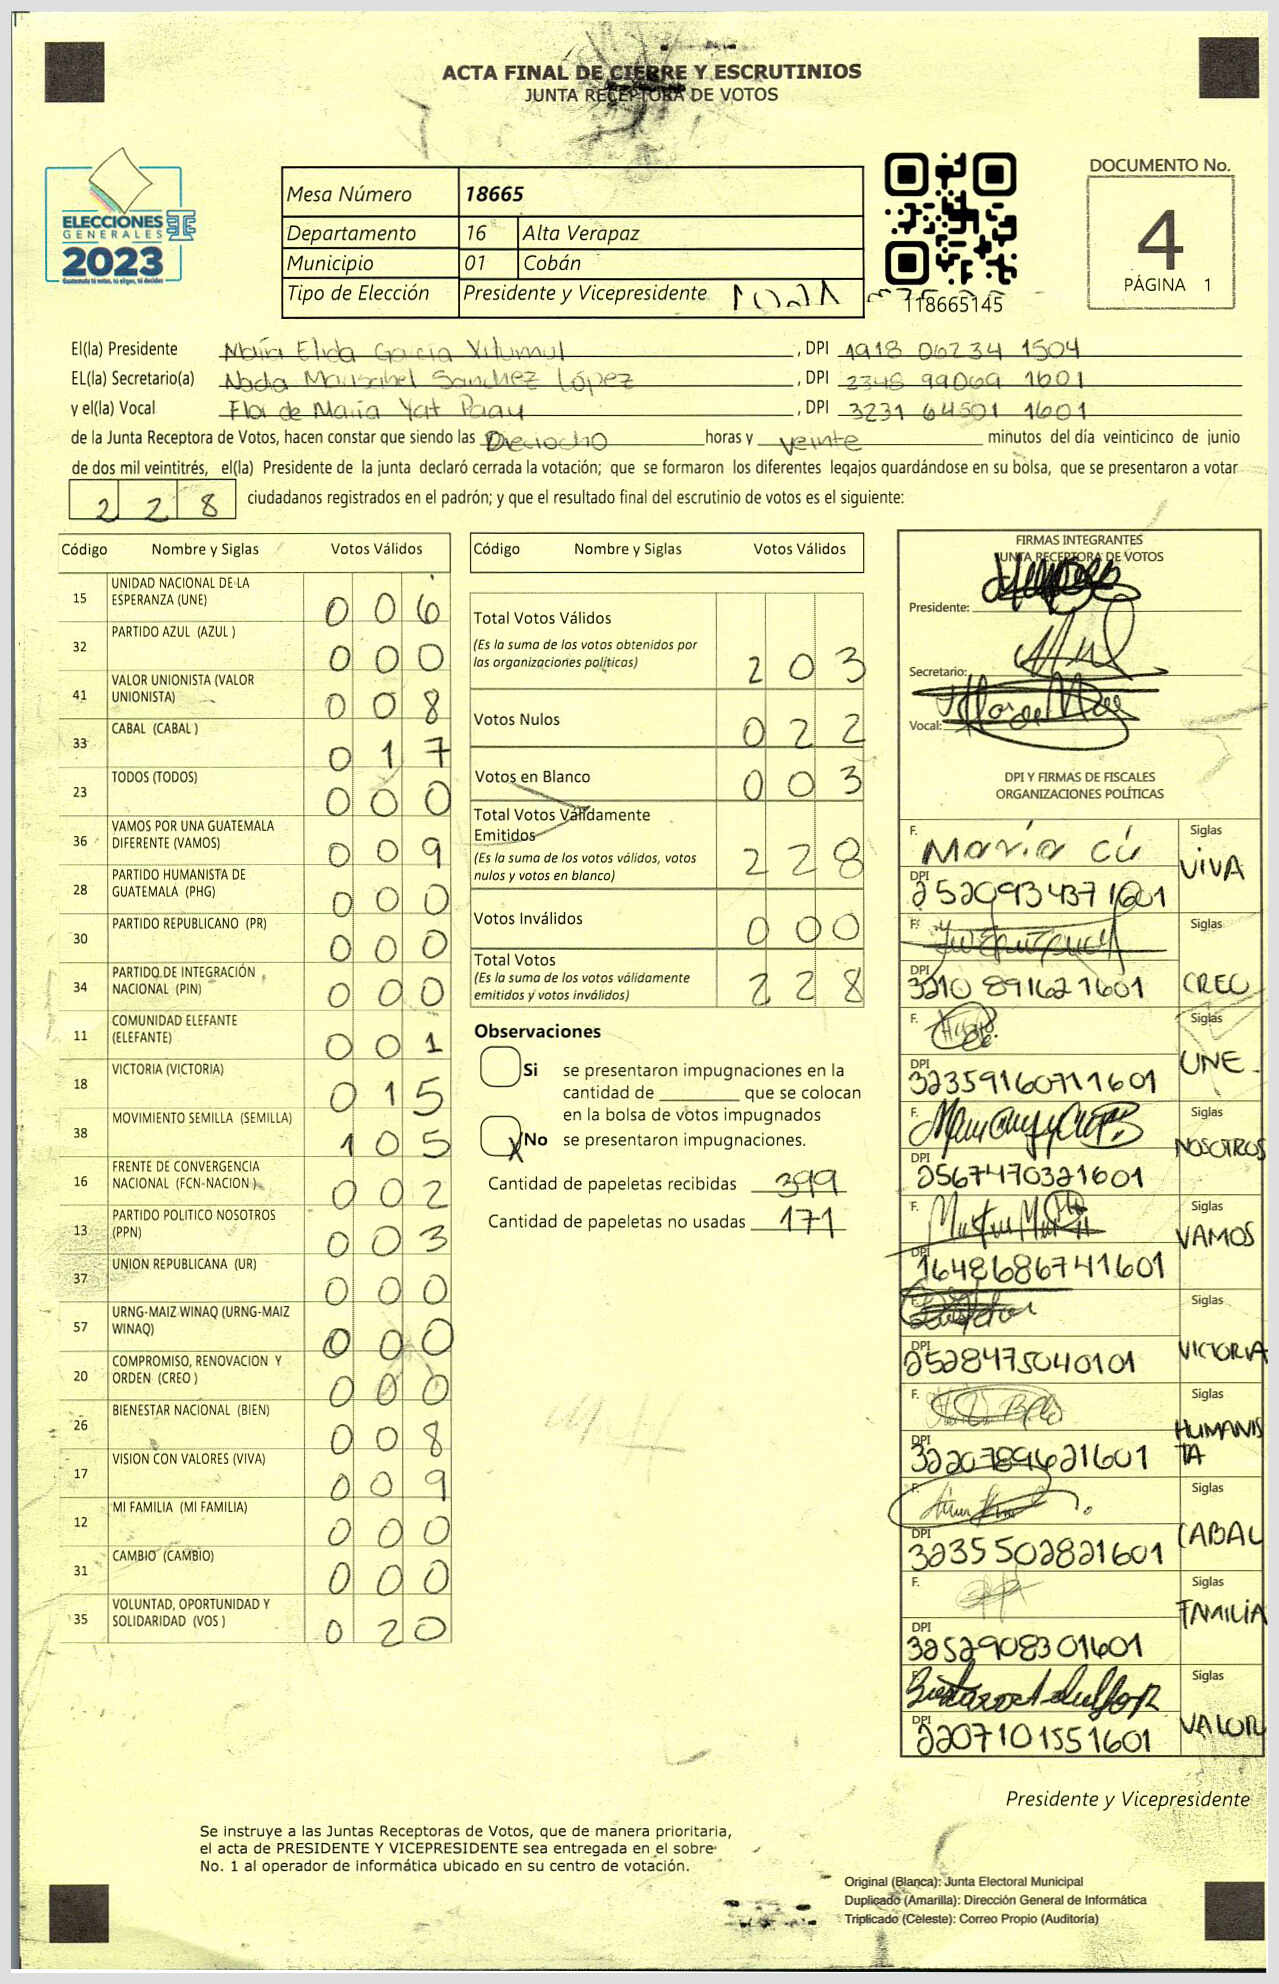 ACTA FINAL DE CIERRE Y ESCRUTINIOS
JUNTA RECEPTORA DE VOTOS
ELECCIONES
GENERALES
2023
Mesa Número 18665
Departamento 16 Alta Verapaz
Municipio 01 Cobán
Tipo de Elección Presidente y Vicepresidente
118665145
DOCUMENTO No.
4
PÁGINA 1
El(la) Presidente María Elida García Xitumul, DPI 1918 06234 1504
EL(la) Secretario(a) Nadia Marisabel Sanchez López, DPI 2348 99069 1601
y el(la) Vocal Flor de María Yat Paau, DPI 3231 64501 1601
de la Junta Receptora de Votos, hacen constar que siendo las Dieciocho horas y veinte minutos del día veinticinco de junio
de dos mil veintitrés, el(la) Presidente de la junta declaró cerrada la votación; que se formaron los diferentes legajos guardándose en su bolsa, que se presentaron a votar
228 ciudadanos registrados en el padrón; y que el resultado final del escrutinio de votos es el siguiente:
Código Nombre y Siglas Votos Válidos
15 UNIDAD NACIONAL DE LA ESPERANZA (UNE) 006
32 PARTIDO AZUL (AZUL ) 000
41 VALOR UNIONISTA (VALOR UNIONISTA) 008
33 CABAL (CABAL ) 017
23 TODOS (TODOS) 000
36 VAMOS POR UNA GUATEMALA DIFERENTE (VAMOS) 009
28 PARTIDO HUMANISTA DE GUATEMALA (PHG) 000
30 PARTIDO REPUBLICANO (PR) 000
34 PARTIDO DE INTEGRACIÓN NACIONAL (PIN) 000
11 COMUNIDAD ELEFANTE (ELEFANTE) 001
18 VICTORIA (VICTORIA) 015
38 MOVIMIENTO SEMILLA (SEMILLA) 105
16 FRENTE DE CONVERGENCIA NACIONAL (FCN-NACION ) 002
13 PARTIDO POLITICO NOSOTROS (PPN) 003
37 UNION REPUBLICANA (UR) 000
57 URNG-MAIZ WINAQ (URNG-MAIZ WINAQ) 000
20 COMPROMISO, RENOVACION Y ORDEN (CREO ) 000
26 BIENESTAR NACIONAL (BIEN) 008
17 VISION CON VALORES (VIVA) 009
12 MI FAMILIA (MI FAMILIA) 000
31 CAMBIO (CAMBIO) 000
35 VOLUNTAD, OPORTUNIDAD Y SOLIDARIDAD (VOS ) 020
Código Nombre y Siglas Votos Válidos
Total Votos Válidos 203
(Es la suma de los votos obtenidos por
las organizaciones políticas)
Votos Nulos 022
Votos en Blanco 003
Total Votos Válidamente
Emitidos 228
(Es la suma de los votos válidos, votos
nulos y votos en blanco)
Votos Inválidos 000
Total Votos 228
(Es la suma de los votos válidamente
emitidos y votos inválidos)
Observaciones
Si se presentaron impugnaciones en la
cantidad de ________ que se colocan
en la bolsa de votos impugnados
X No se presentaron impugnaciones.
Cantidad de papeletas recibidas 399
Cantidad de papeletas no usadas 171
FIRMAS INTEGRANTES
JUNTA RECEPTORA DE VOTOS
Presidente:
Secretario:
Vocal:
DPI Y FIRMAS DE FISCALES
ORGANIZACIONES POLÍTICAS
F. María Cú Siglas VIVA
DPI 2520934371601
F. Siglas CREO
DPI 3210 891621601
F. Siglas UNE
DPI 3235916071 1601
F. Siglas NOSOTROS
DPI 2567470321601
F. Siglas VAMOS
DPI 1648686741601
F. Siglas VICTORIA
DPI 2528475040101
F. Siglas HUMANISTA
DPI 3220789621601
F. Siglas CABAL
DPI 3235502821601
F. Siglas FAMILIA
DPI 3252908301601
F. Siglas VALOR
DPI 2207101551601
Presidente y Vicepresidente
Se instruye a las Juntas Receptoras de Votos, que de manera prioritaria,
el acta de PRESIDENTE Y VICEPRESIDENTE sea entregada en el sobre
No. 1 al operador de informática ubicado en su centro de votación.
Original (Blanca): Junta Electoral Municipal
Duplicado (Amarilla): Dirección General de Informática
Triplicado (Celeste): Correo Propio (Auditoría)